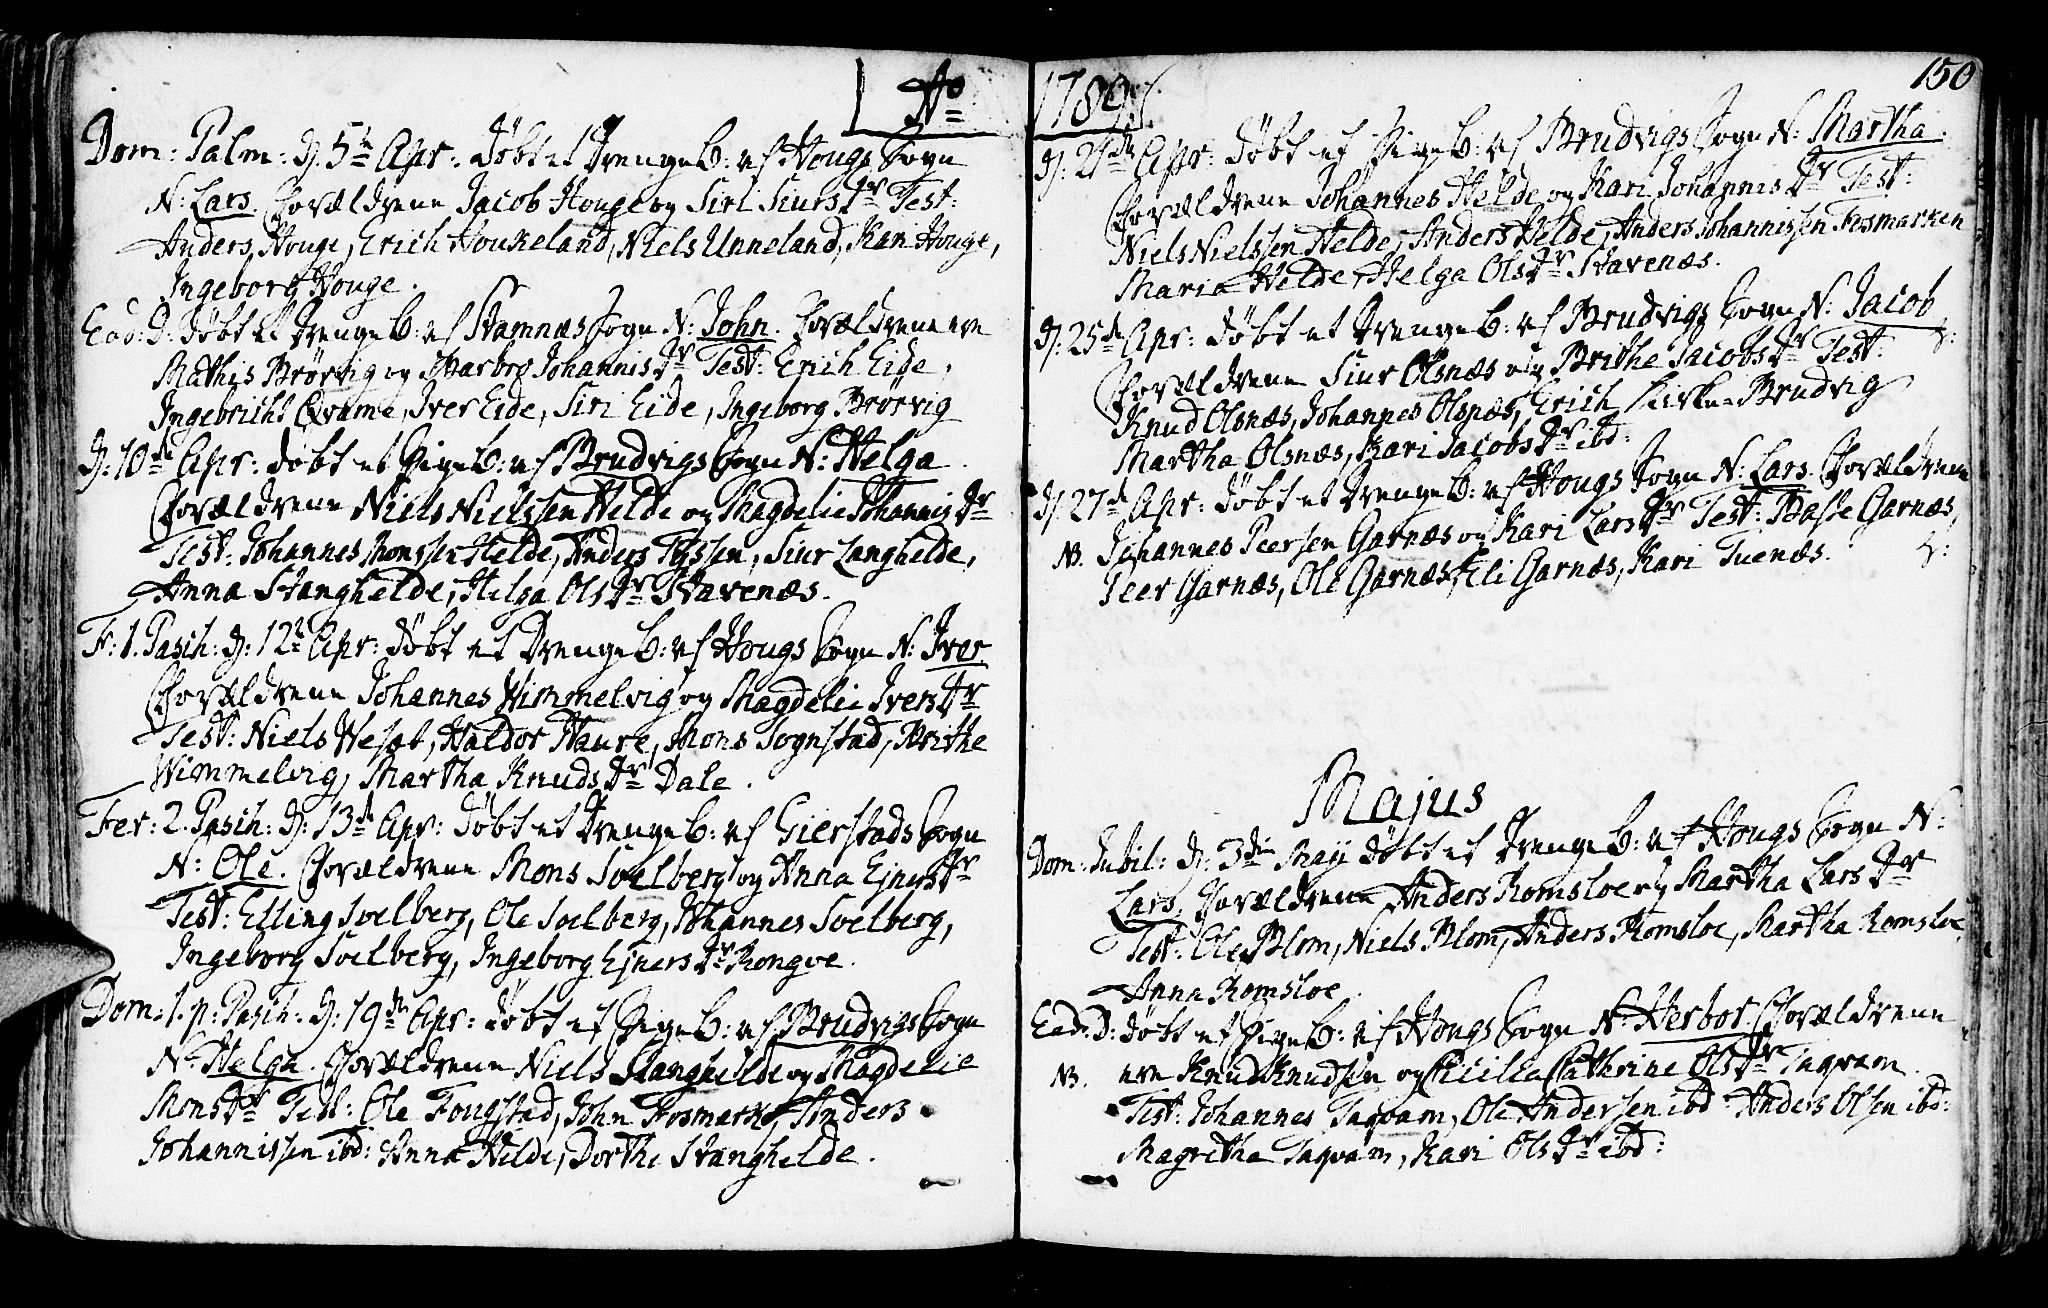 Ao 1789.
150
Dom: Palm: d. 5te Apr: døbt et Drengeb: af Hougs Sogn
N: Lars. Forældrene Jacob Houge og Siri Siursdr Test:
Anders Houge, Erich Houkeland, Niels Unneland, Kari Houge,
Ingeborg Houge.
Eod: D: døbt et Drengeb: af Stamnæs Sogn N: John. Forældrene ere
Mathis Brørvig og Marbor Johannisdr Test: Erich Eide,
Ingebricht Qvame, Iver Eide, Siri Eide, Ingeborg Brørvig
d: 10de Apr: døbt et Pigeb: af Brudvigs Sogn N: Helga.
Forældrene Niels Nielssen Helde og Magdelie Johannisdr
Test: Johannes Monssen Helde, Anders Tyssen, Siur Langhelde,
Anna Stanghelde, Helga Olsdr Stavenæs.
F: 1. Pasch: d: 12te Apr: døbt et Drengeb: af Hougs Sogn N: Iver.
Forældrene Johannes Wimmelvig og Magdelie Iversdr
Test: Niels Wesæt, Haldor Haure, Mons Sognstad, Brithe
Wimmelvig, Martha Knudsdr Dale.
Fer: 2. Pasch: d: 13de Apr: døbt et Drengeb: af Gierstads Sogn
N: Ole. Forældrene Mons Soelberg og Anna Ejnersdr
Test: Elling Soelberg, Ole Soelberg, Johannes Soelberg,
Ingeborg Soelberg, Ingeborg Ejnersdr Rongve.
Dom: 1. p: Pasch: d: 19de Apr: døbt et Pigeb: af Brudvigs Sogn
N: Helga. Forældrene Niels Stanghelde og Magdelie
Monsdr Test: Ole Fougstad, John Fosmark, Anders
Johannissen ibd: Anna Helde, Dorthe Stanghelde.
d: 21de Apr: døbt et Pigeb: af Brudvigs Sogn N: Martha.
Forældrene Johannes Helde og Kari Johannisdr Test:
Niels Nielssen Helde, Anders Helde, Anders Johannissen Fosmarken
Maria Helde, Helga Olsdr Stavenæs.
d: 25de Apr: døbt et Drengeb: af Brudvigs Sogn N: Jacob
Forældrene Siur Olsnæs og Brithe Jacobsdr Test:
Knud Olsnæs, Johannes Olsnæs, Erich Kirke Brudvig
Martha Olsnæs, Kari Jacobsdr ibd:
d: 27de Apr: døbt et Drengeb: af Hougs Sogn N: Lars. Forældrene
NB. Johannes Peersen Garnæs og Kari Larsdr Test: Basse Garnæs,
Peer Garnæs, Ole Garnæs, Eli Garnæs, Kari Tuenæs.
Majus
Dom: Jubil: d: 3die Maij døbt et Drengeb: af Hougs Sogn N:
Lars. Forældrene Anders Romsloe og Martha Larsdr
Test: Ole Blom, Niels Blom, Anders Romsloe, Martha Romsloe,
Anna Romsloe.
Eod: D: døbt et Pigeb: af Hougs Sogn N: Herbor. Forældrene
NB. ere Knud Knudsen og Cicilia Cathrine Olsdr Taqvam.
Test: Johannes Taqvam, Ole Andersen ibd: Anders Olsen ibd:
Magretha Taqvam, Kari Olsdr ibd: